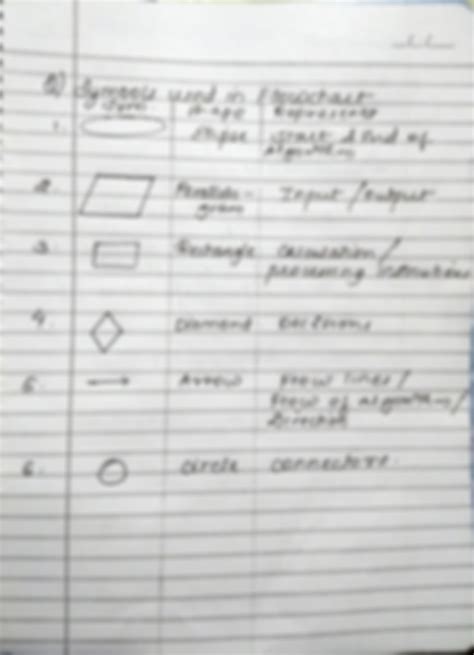 Q) Symbols used in Flowchart
Symbol Shape Represents
1. Ellipse Start & End of
algorithm
2. Parallelo- Input / output
gram
3. Rectangle Calculation /
processing instructions
4. Diamond Decisions
5. Arrow Flow lines /
Flow of algorithm /
Direction
6. Circle connectors.